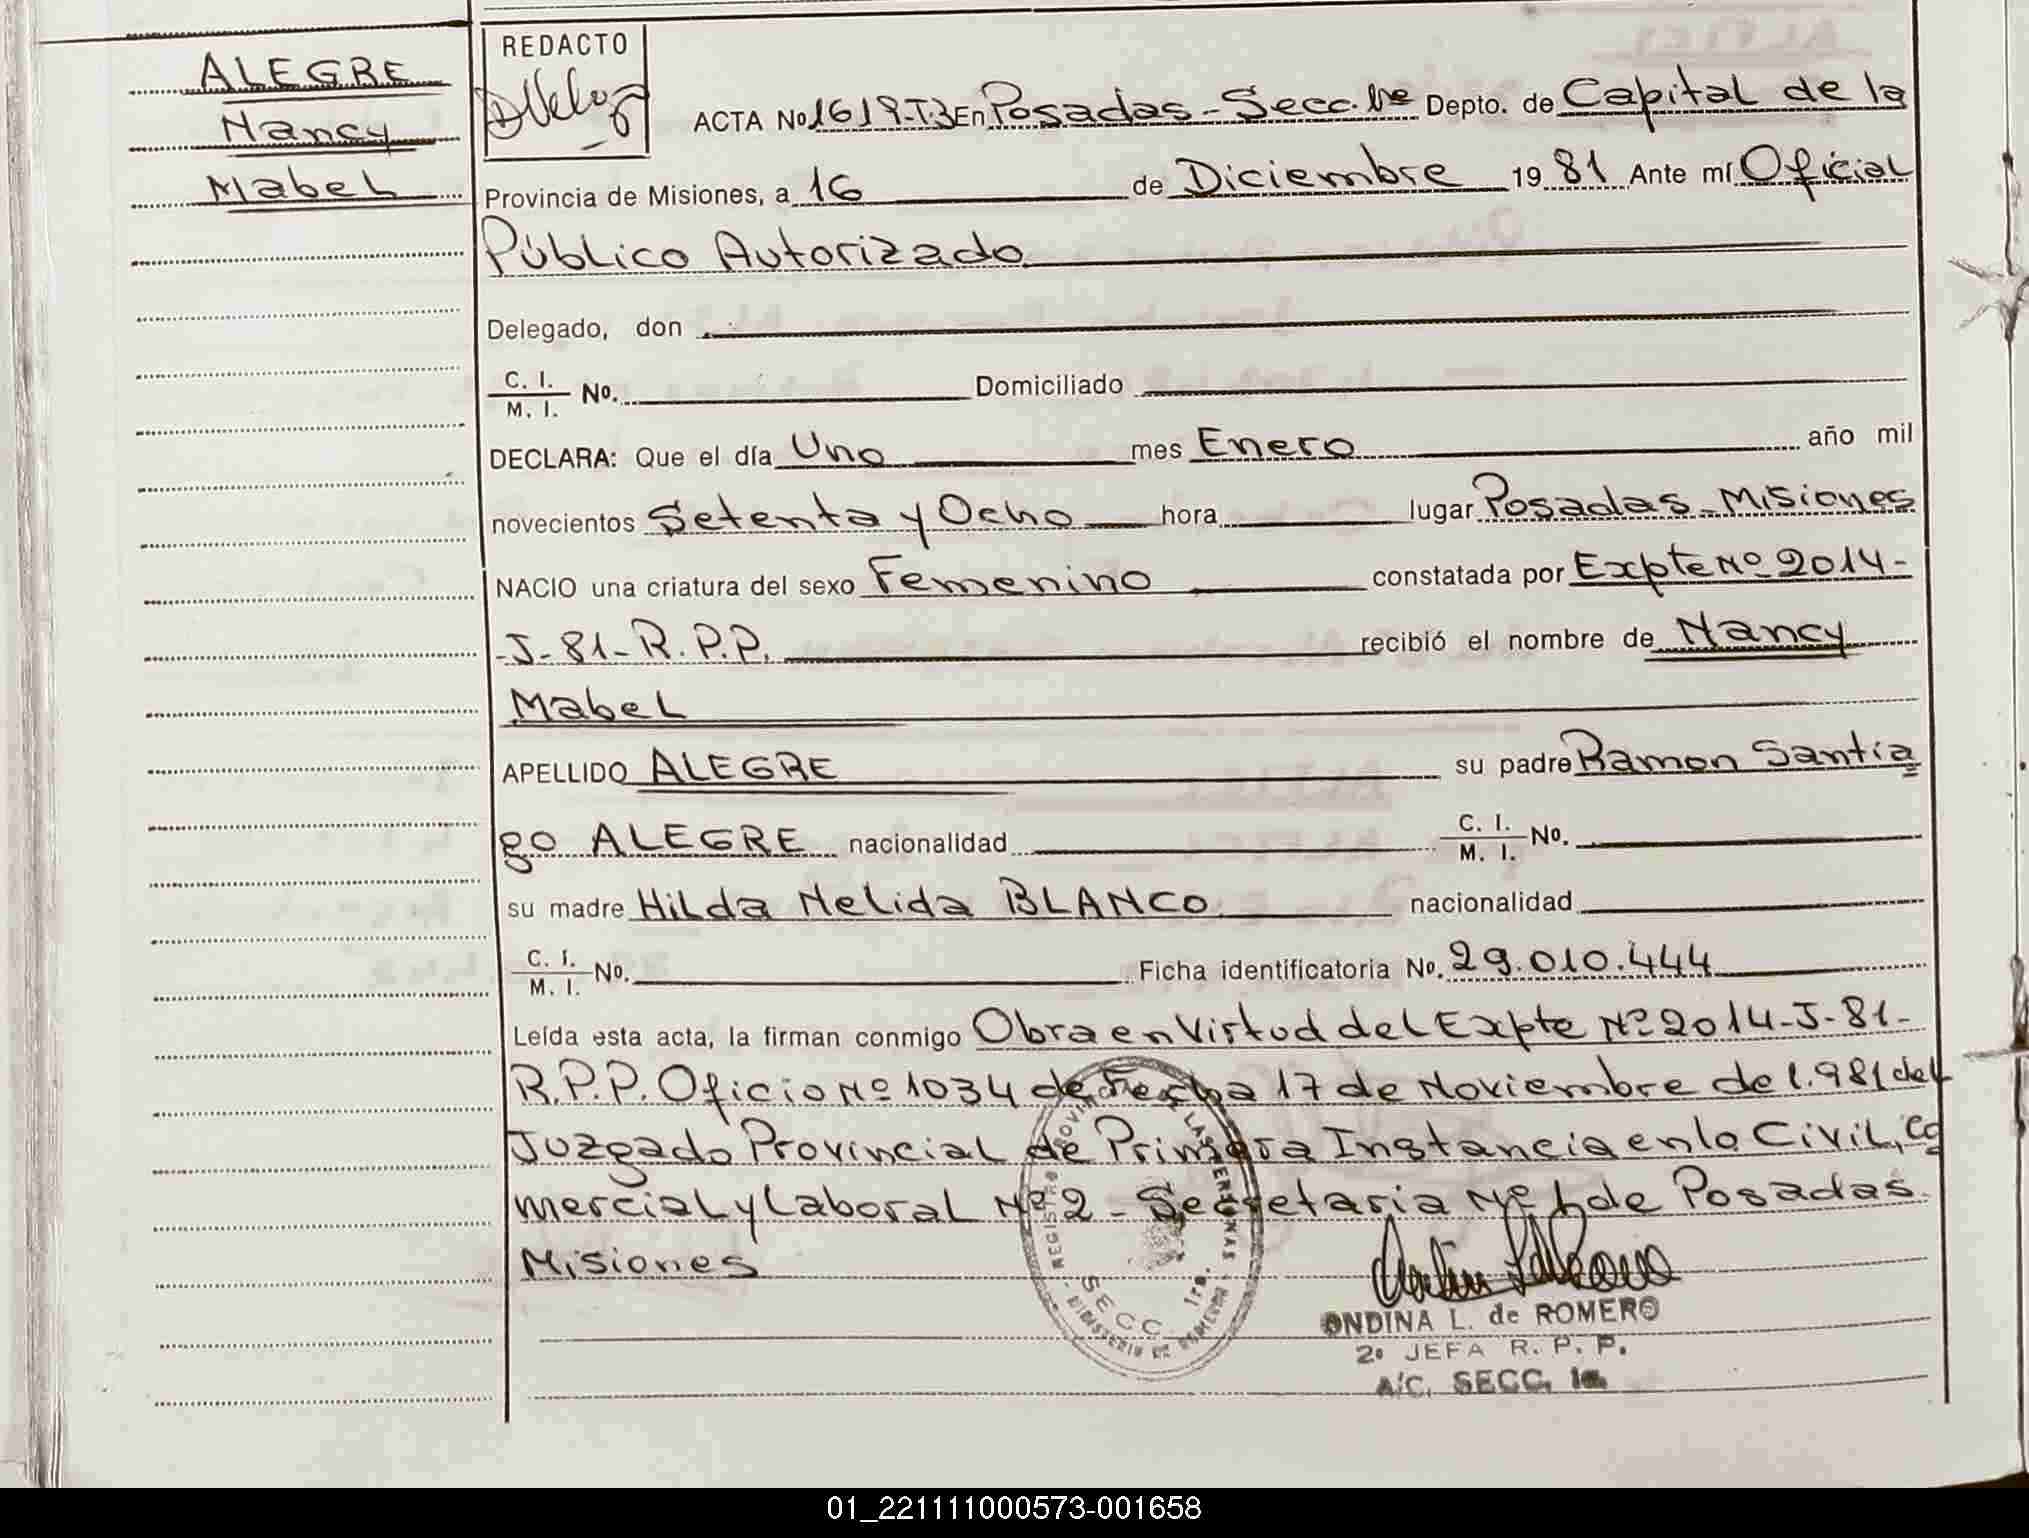 ALEGRE
Nancy
Mabel
REDACTO
ACTA No 1619-T.3 En Posadas - Secc. 1ra Depto. de Capital de la
Provincia de Misiones, a 16 de Diciembre 1981 Ante mí Oficial
Público Autorizado
Delegado, don
C. I.
M. I. No. Domiciliado
DECLARA: Que el día Uno mes Enero año mil
novecientos Setenta y Ocho hora lugar Posadas - Misiones
NACIO una criatura del sexo Femenino constatada por Expte Nº 2014-
-J-81-R.P.P. recibió el nombre de Nancy
Mabel
APELLIDO ALEGRE su padre Ramon Santia
go ALEGRE nacionalidad C. I.
M. I. No.
su madre Hilda Nelida BLANCO nacionalidad
C. I.
M. I. No. Ficha identificatoria No. 29.010.444
Leída esta acta, la firman conmigo Obra en Virtud del Expte Nº 2014-J-81-
R.P.P. Oficio Nº 1034 de Fecha 17 de Noviembre de 1.981 del
Juzgado Provincial de Primera Instancia en lo Civil, Co
mercial y Laboral Nº 2 - Secretaria Nº 1 de Posadas
Misiones
REGISTRO PROVINCIAL DE LAS PERSONAS
SECC. 1ra.
ONDINA L. de ROMERO
2º JEFA R. P. P.
A/C. SECC. 1a.
01_221111000573-001658